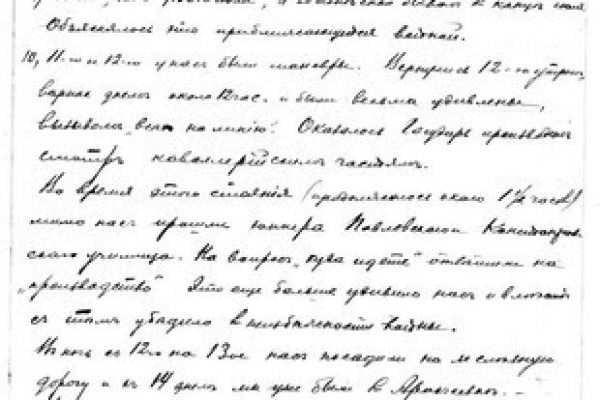 Объяснялось это приближающейся войной.
10, 11-го и 12-го у нас были маневры. Вернулись 12-го утром,
вернее днем около 12 час. и были весьма удивлены,
вызовом „всех на линию". Оказалось Государь производил
смотр кавалерийским частям.
Во время этого стояния (продолжалось около 1½ часов)
мимо нас прошли юнкера Павловского
училища. На вопрос „куда идете" отвечали на
„производство" Это еще больше удивило нас и
с тем убедило в неизбежности войны.
В ночь с 12-го на 13-ое нас посадили на железную
дорогу и 14 днем мы уже были в